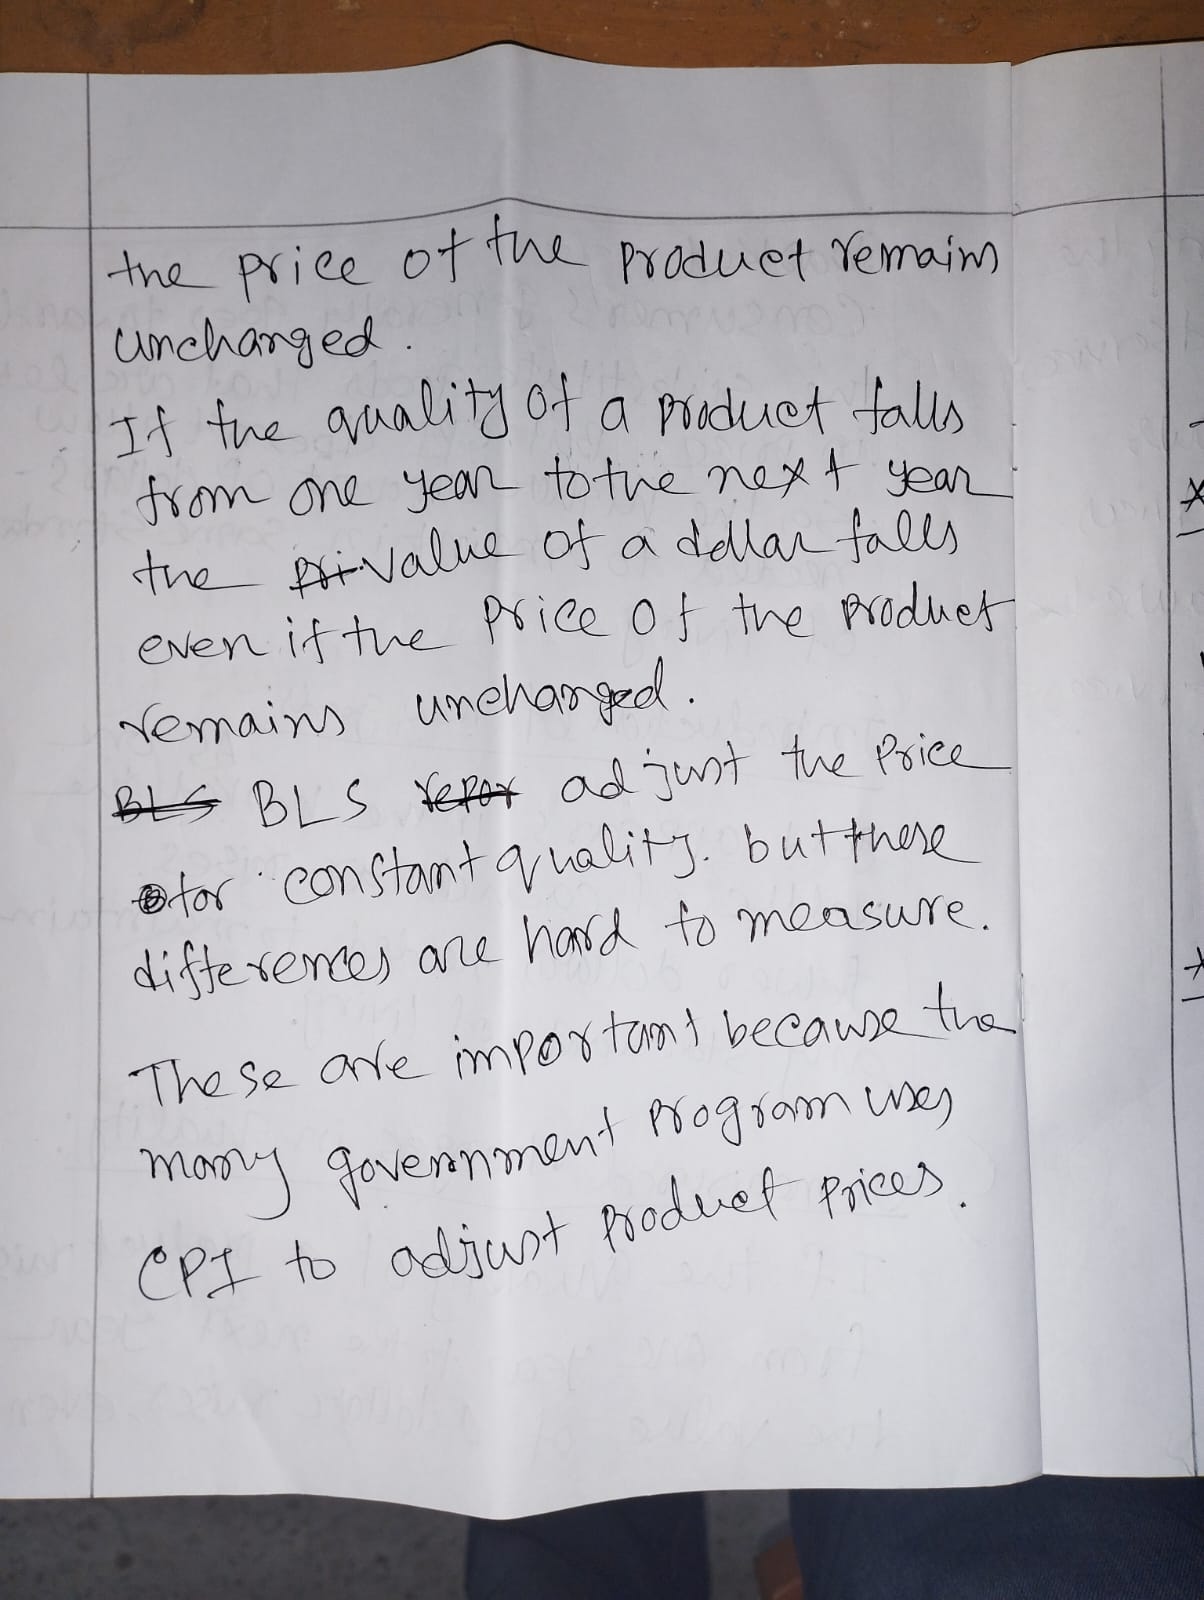 the price of the product remains
unchanged.
If the quality of a product falls
from one year to the next year
the value of a dollar falls
even if the price of the product
remains unchanged.
BLS BLS repor adjust the price
for constant quality. but these
differences are hard to measure.
These are important because the
many government program uses
CPI to adjust product prices.